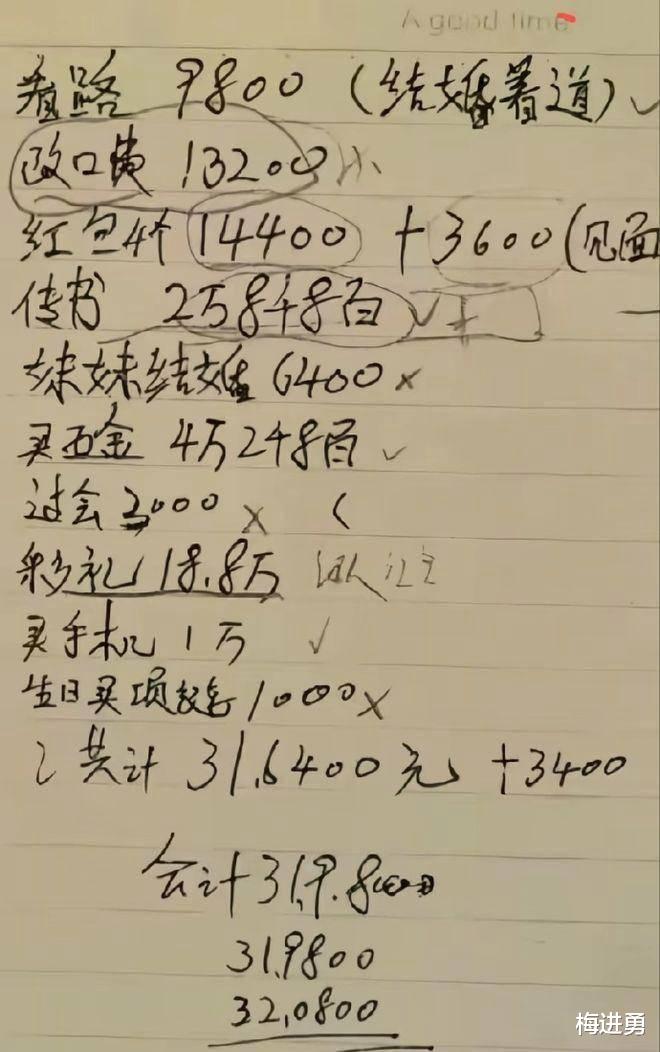 A good time
看路 9800 (结婚看道) ✓
改口费 13200
红包4个 14400 +3600 (见面
传书 2万8千8百 ✓
妹妹结婚 6400 ×
买五金 4万2千8百 ✓
过会 3000 × (
彩礼 18.8万
买手机 1万 ✓
生日买项链 1000 ×
共计 31,6400元 +3400
合计 31,9.8
31,9800
32,0800
梅进勇